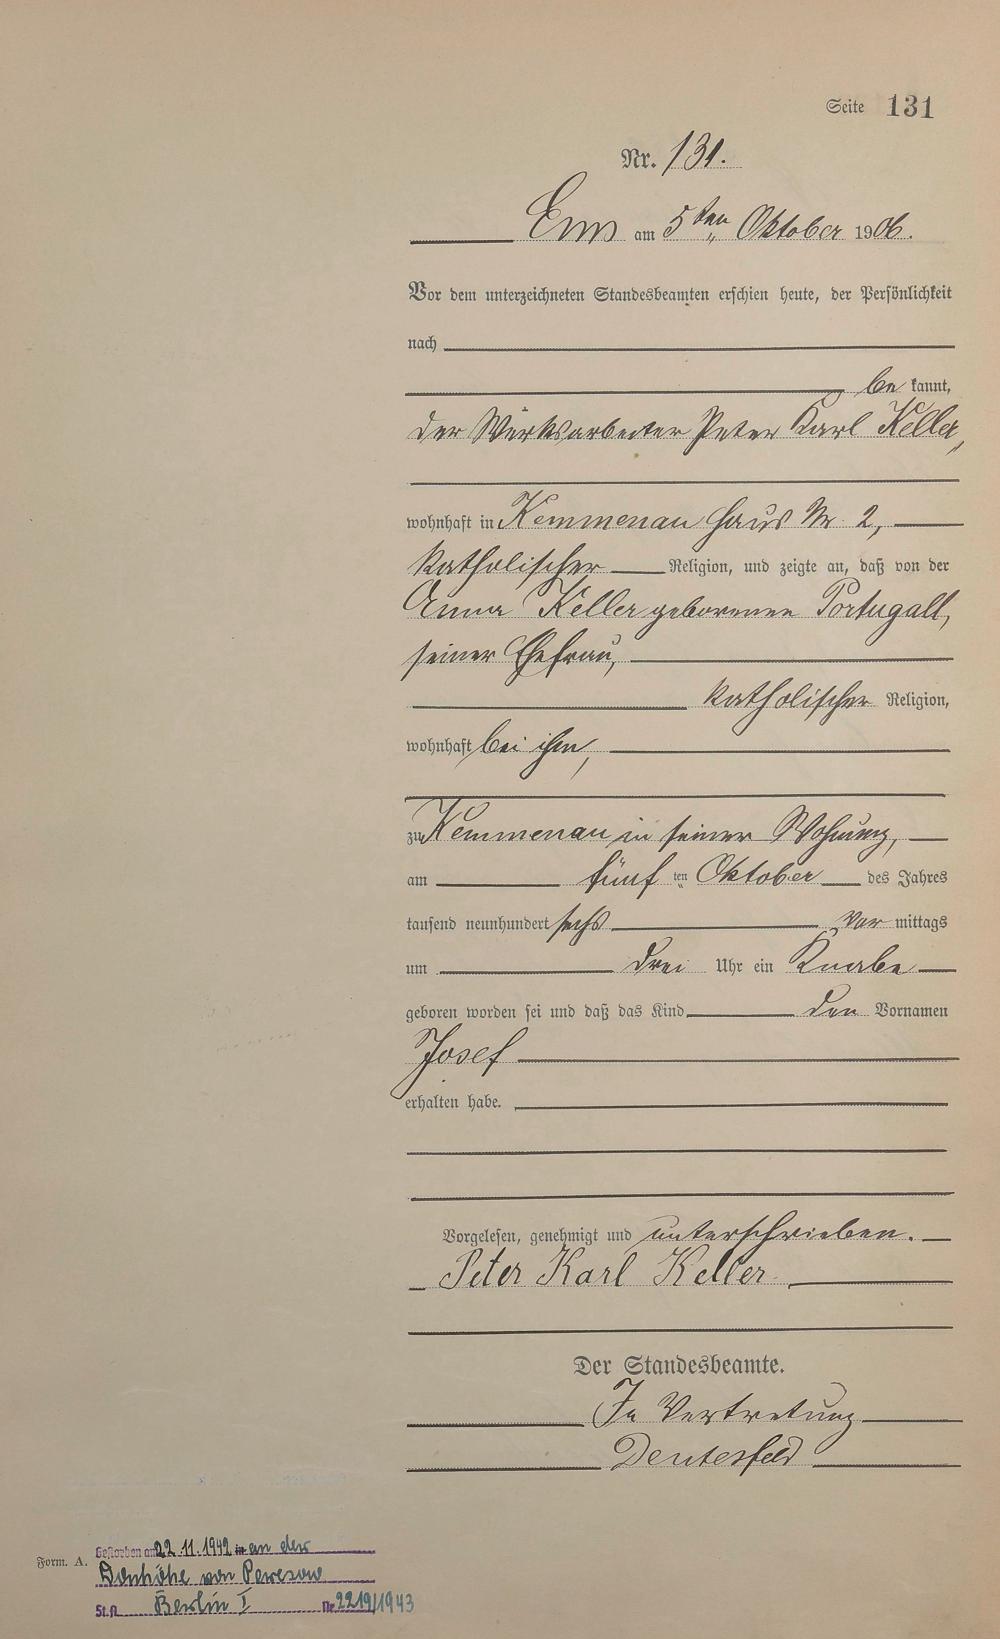 Seite 131
Nr. 131.
Ems am 5ten Oktober 1906.
Vor dem unterzeichneten Standesbeamten erschien heute, der Persönlichkeit
nach
be kannt,
der Werksarbeiter Peter Karl Keller,
wohnhaft in Kemmenau Haus Nr. 2,
katholischer Religion, und zeigte an, daß von der
Anna Keller geborenen Portugall,
seiner Ehefrau,
katholischer Religion,
wohnhaft bei ihm,
zu Kemmenau in seiner Wohnung,
am fünf ten Oktober des Jahres
tausend neunhundert sechs Vor mittags
um drei Uhr ein Knabe
geboren worden sei und daß das Kind den Vornamen
Josef
erhalten habe.
Vorgelesen, genehmigt und unterschrieben.
Peter Karl Keller
Der Standesbeamte.
In Vertretung
Form. A.
Gestorben am 22.11.1942 in an der
Donhöhe von
St.A. Berlin I Nr. 2219/1943